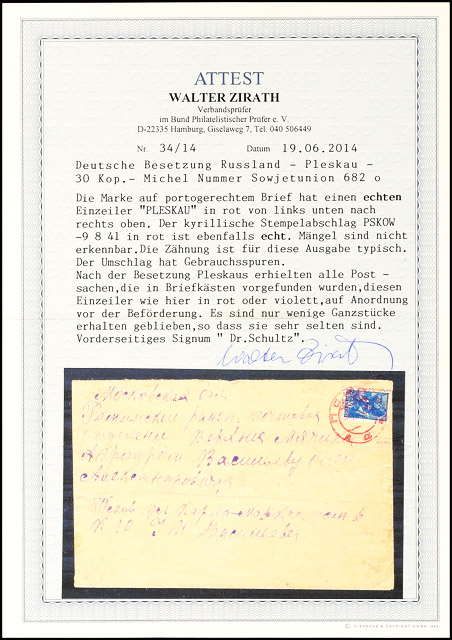 ATTEST
WALTER ZIRATH
Verbandsprüfer
im Bund Philatelistischer Prüfer e. V.
D-22335 Hamburg, Giselaweg 7, Tel. 040 506449
Nr. 34/14 Datum 19.06.2014
Deutsche Besetzung Russland - Pleskau -
30 Kop.- Michel Nummer Sowjetunion 682 o
Die Marke auf portogerechtem Brief hat einen echten
Einzeiler "PLESKAU" in rot von links unten nach
rechts oben. Der kyrillische Stempelabschlag PSKOW
-9 8 41 in rot ist ebenfalls echt. Mängel sind nicht
erkennbar.Die Zähnung ist für diese Ausgabe typisch.
Der Umschlag hat Gebrauchsspuren.
Nach der Besetzung Pleskaus erhielten alle Post -
sachen,die in Briefkästen vorgefunden wurden,diesen
Einzeiler wie hier in rot oder violett,auf Anordnung
vor der Beförderung. Es sind nur wenige Ganzstücke
erhalten geblieben,so dass sie sehr selten sind.
Vorderseitiges Signum " Dr.Schultz".
Walter Zirath
Московская обл.
район
Васильеву
Александровичу
Карла-Маркса
К 10